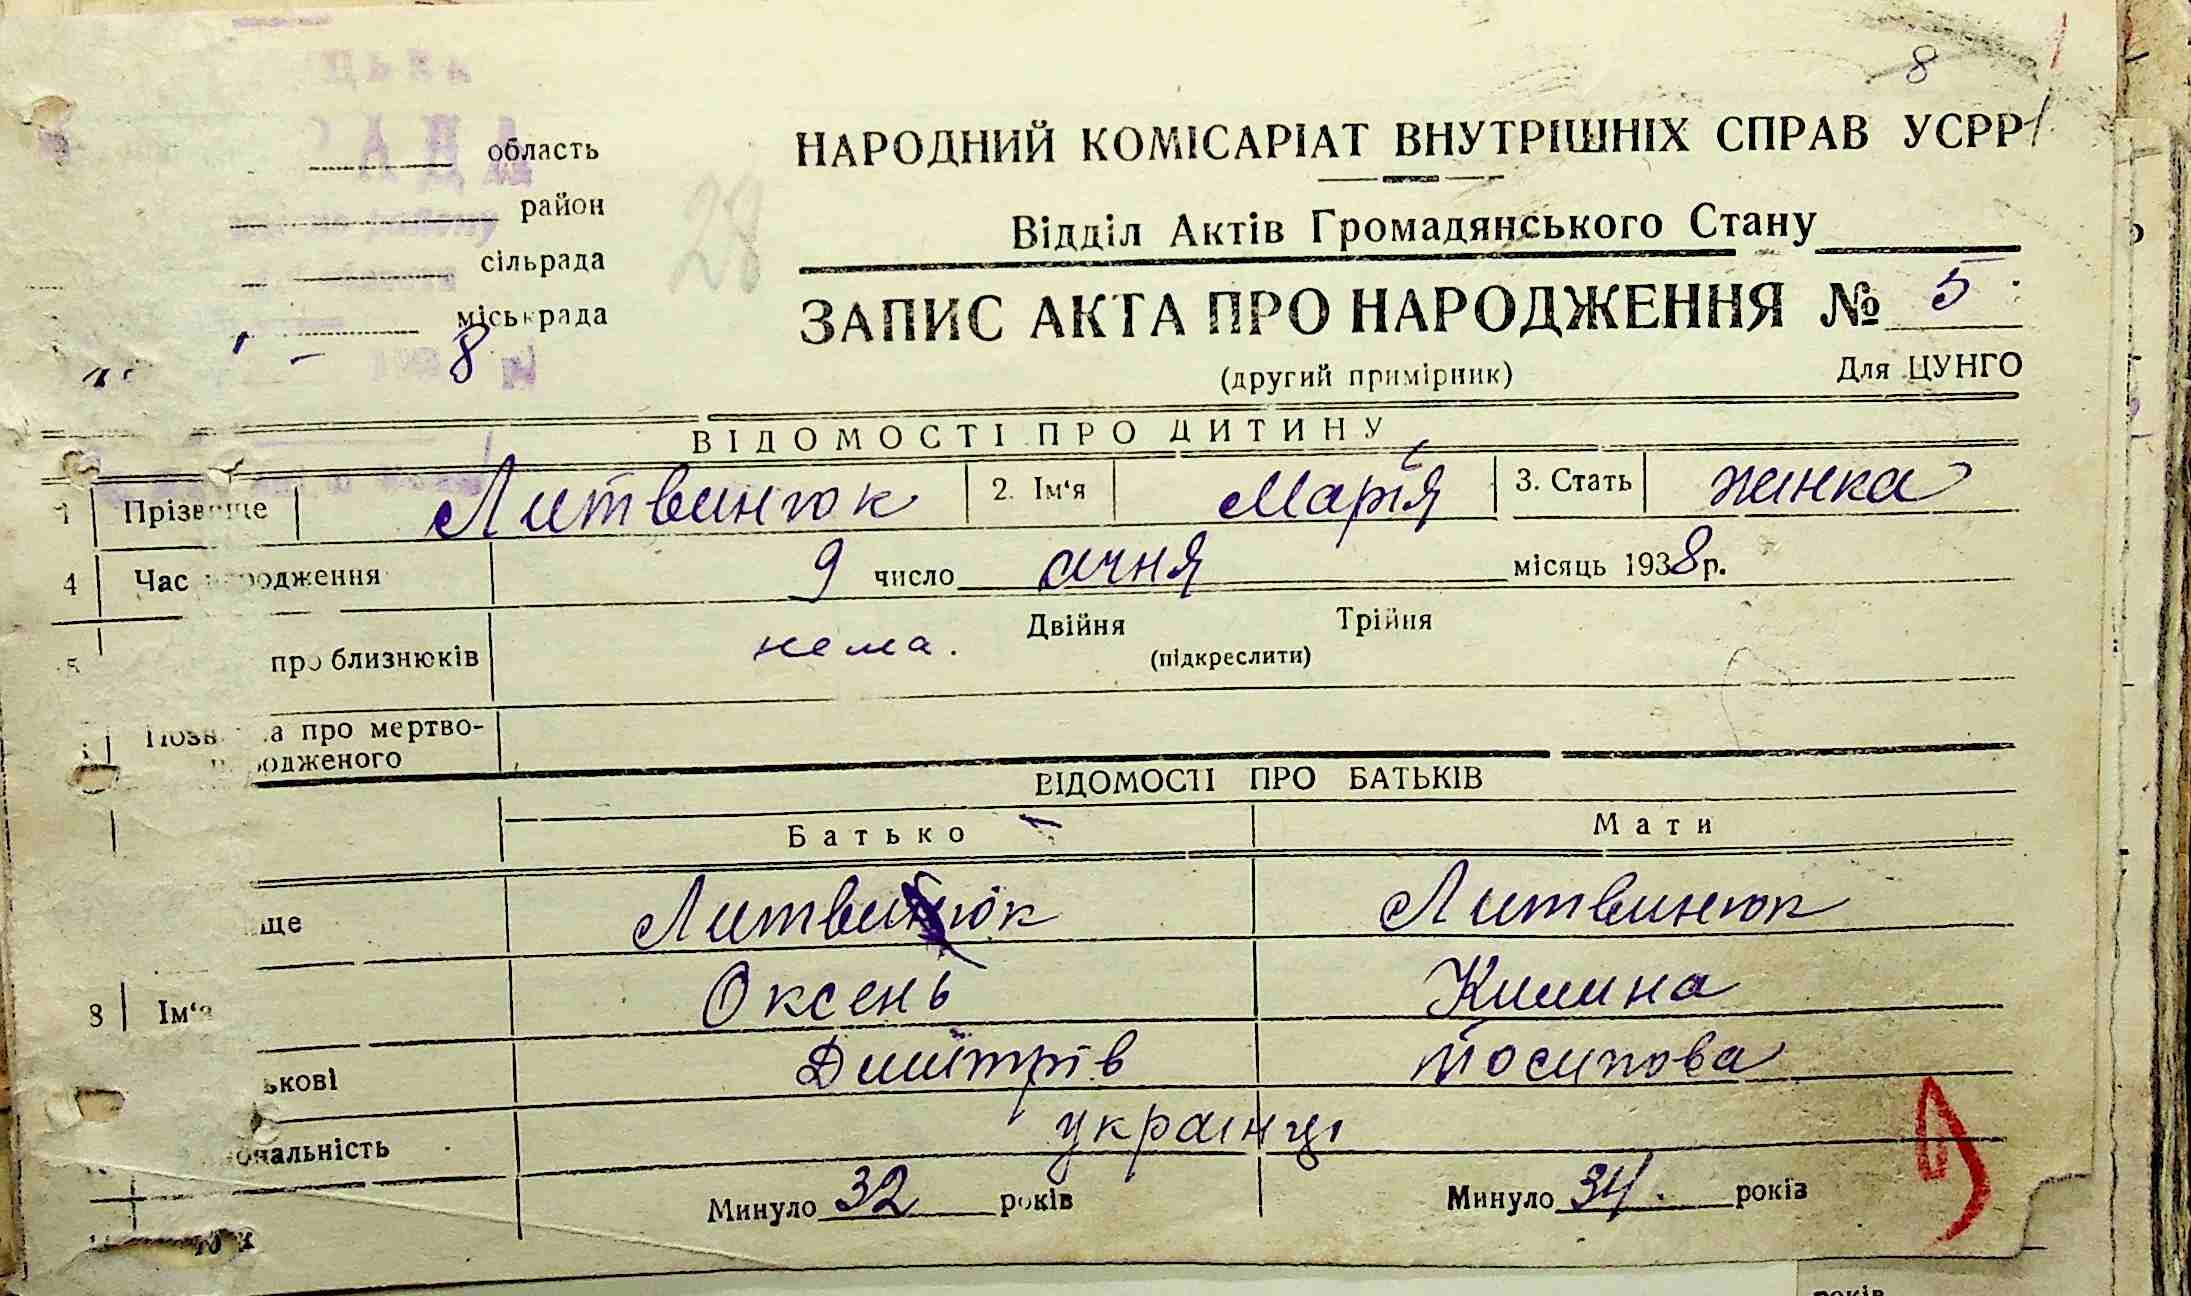 8
область
район
сільрада
міськрада
8
28
НАРОДНИЙ КОМІСАРІАТ ВНУТРІШНІХ СПРАВ УСРР
Відділ Актів Громадянського Стану
ЗАПИС АКТА ПРО НАРОДЖЕННЯ № 5
(другий примірник) Для ЦУНГО
ВІДОМОСТІ ПРО ДИТИНУ
1 Прізвище Литвинюк 2. Ім'я Марія 3. Стать жинка
4 Час народження 9 число січня місяць 1938 р.
5 про близнюків нема. Двійня Трійня
(підкреслити)
про мертво-
родженого
ВІДОМОСТІ ПРО БАТЬКІВ
Батько Мати
ще Литвинюк Литвинюк
8 Ім'я Оксень Килина
ькові Дмитрів Йосипова
ональність українці
Минуло 32 років Минуло 34. років
років